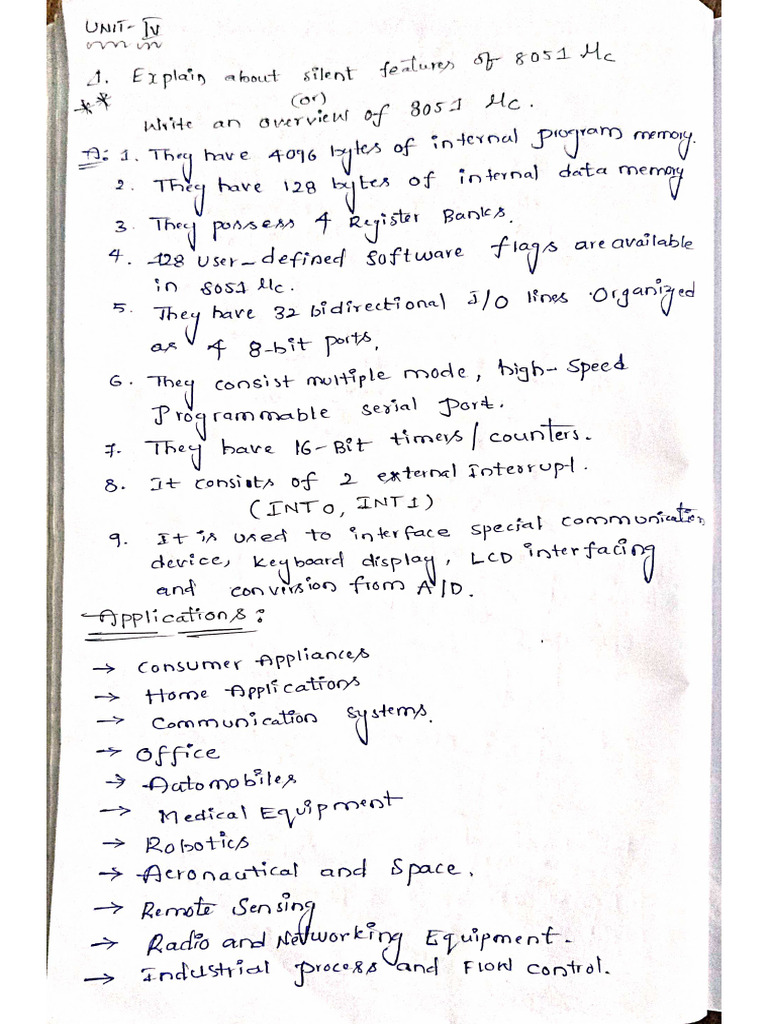 UNIT- IV
1. Explain about silent features of 8051 Mc
** (or)
Write an overview of 8051 Mc.
A: 1. They have 4096 bytes of internal program memory.
2. They have 128 bytes of internal data memory
3. They possess 4 Register Banks.
4. 128 user-defined software flags are available
in 8051 Mc.
5. They have 32 bidirectional I/O lines organized
as 4 8-bit ports.
6. They consist multiple mode, high-speed
Programmable serial port.
7. They have 16-Bit timers/counters.
8. It consists of 2 external Interrupt.
(INT0, INT1)
9. It is used to interface special communication
device, keyboard display, LCD interfacing
and conversion from A/D.
Applications:
→ Consumer Appliances
→ Home Applications
→ Communication systems.
→ Office
→ Automobiles
→ Medical Equipment
→ Robotics
→ Aeronautical and Space.
→ Remote Sensing
→ Radio and Networking Equipment.
→ Industrial process and Flow control.